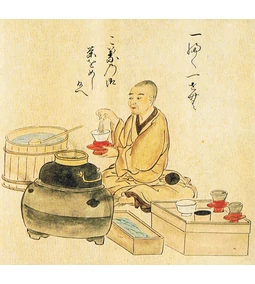 一ふく一せん
こ葉の御
茶をめし
候へ